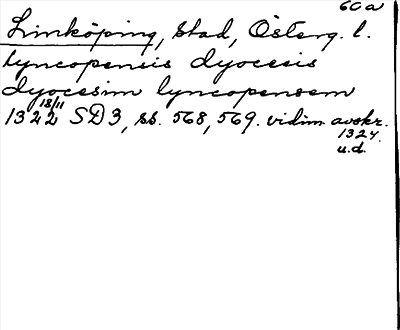 60a
Linköping, stad, Österg. l.
lyncopensis dyocesis
dyocesim lyncopensem
1322 18/11 SD 3, ss. 568, 569. vidim. avskr.
1324.
u.d.